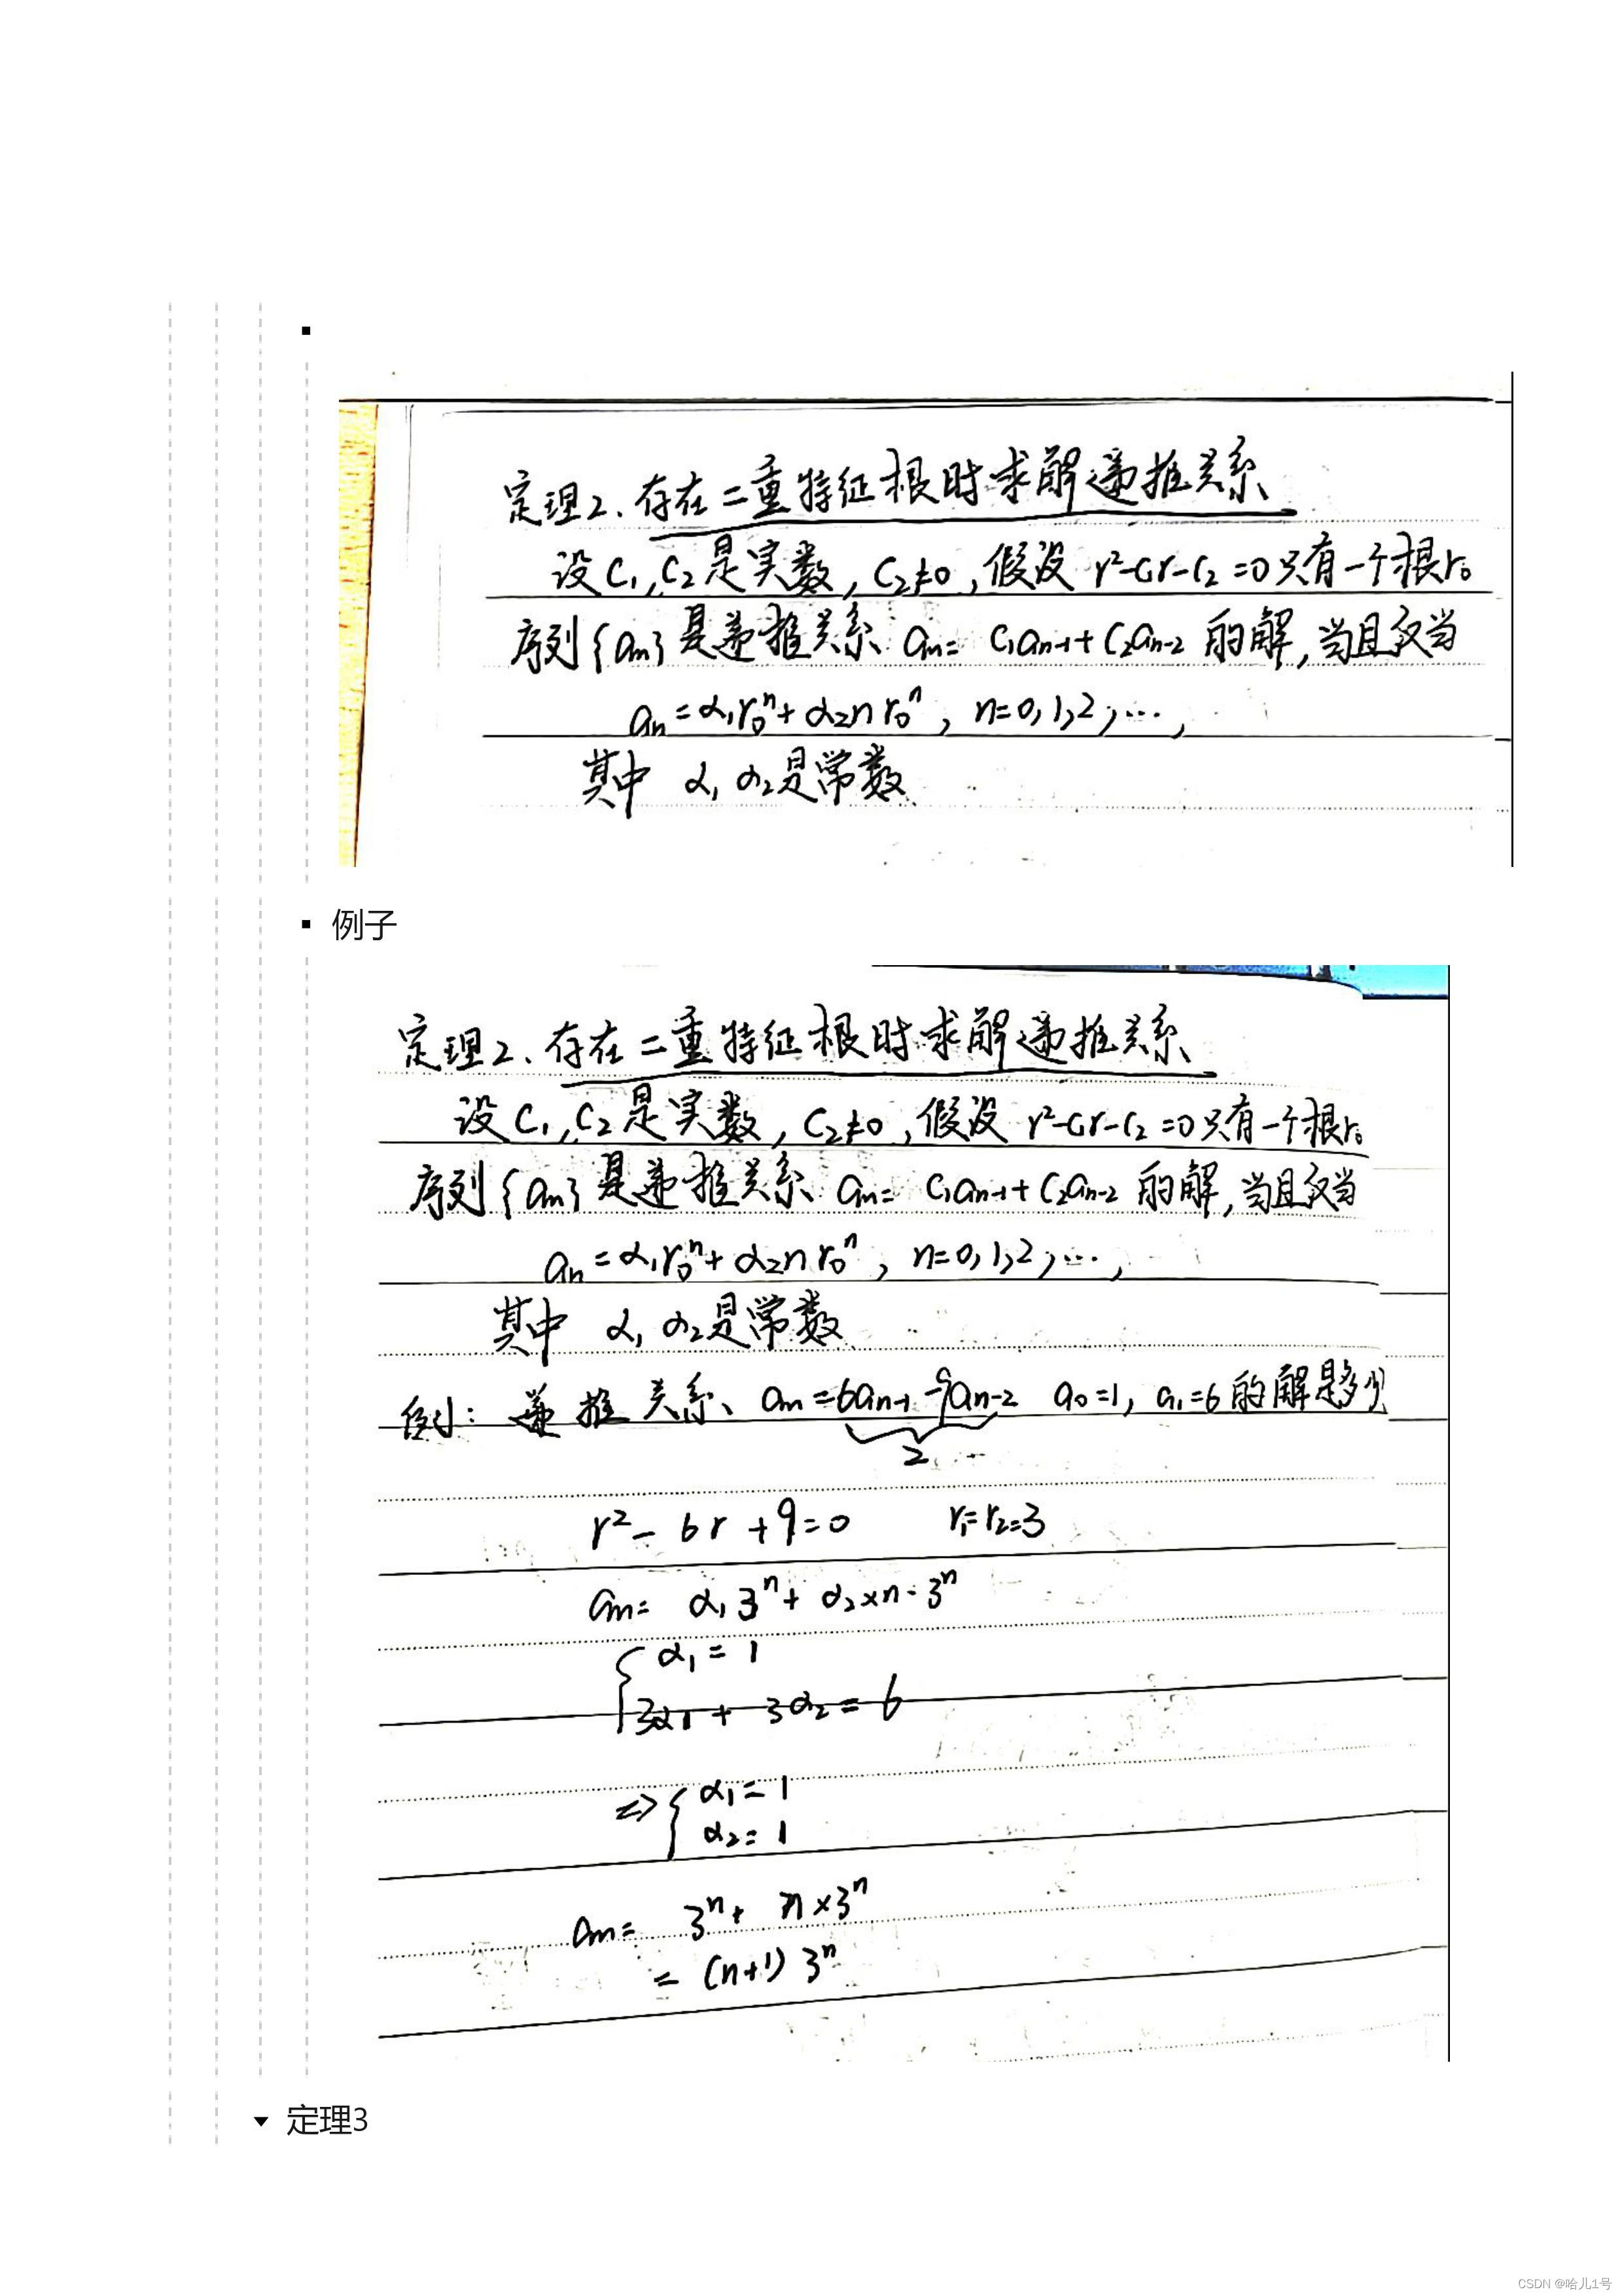 定理2、存在二重特征根时求解递推关系
设 C₁,C₂是实数, C₂≠0, 假设 r²-C₁r-C₂=0只有一个根r₀
序列{an}是递推关系 an= C₁an-1+C₂an-2 的解,当且仅当
an=α₁r₀ⁿ+α₂nr₀ⁿ, n=0,1,2,…,
其中 α₁ α₂是常数
例子
定理2、存在二重特征根时求解递推关系
设 C₁,C₂是实数, C₂≠0, 假设 r²-C₁r-C₂=0只有一个根r₀
序列{an}是递推关系 an= C₁an-1+C₂an-2 的解,当且仅当
an=α₁r₀ⁿ+α₂nr₀ⁿ, n=0,1,2,…,
其中 α₁ α₂是常数
例: 递推关系、an=6an-1-9an-2 a₀=1, a₁=6的解是多少
2
r²-6r+9=0 r₁=r₂=3
an= α₁3ⁿ+α₂×n·3ⁿ
α₁=1
3α₁+3α₂=6
=> α₁=1
α₂=1
an= 3ⁿ+ n×3ⁿ
= (n+1) 3ⁿ
定理3
CSDN @哈儿1号